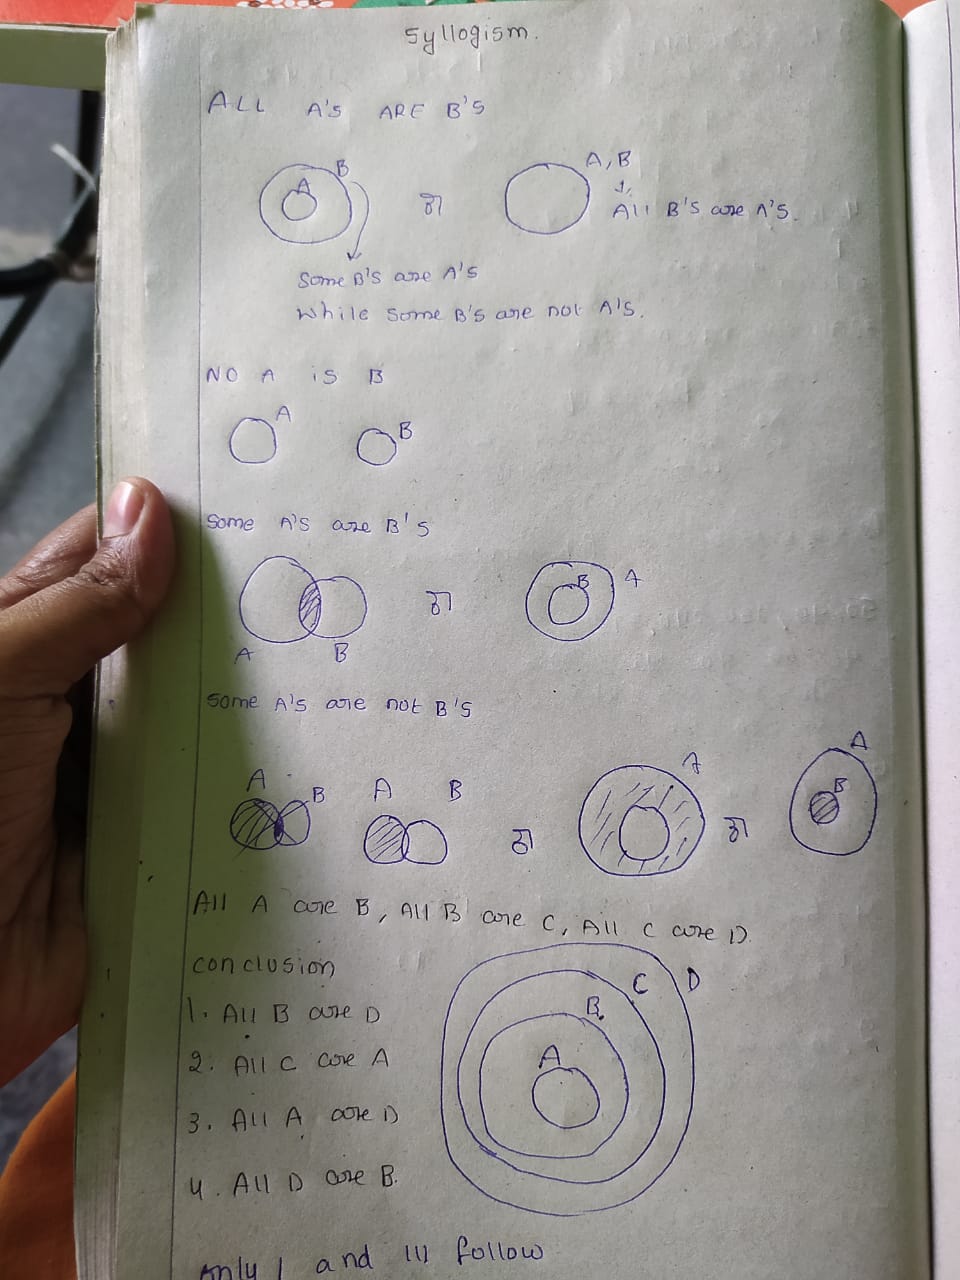 Syllogism.
ALL A'S ARE B'S
B
A
वा
A, B
All B'S are A'S.
Some B'S are A'S
While some B'S are not A'S.
NO A is B
A
B
Some A'S are B'S
A
B
वा
B
A
Some A'S are not B'S
A
B
A
B
वा
A
वा
A
B
All A are B, All B are C, All C are D.
Conclusion
1. All B are D
2. All C are A
3. All A are D
4. All D are B.
A
B.
C
D
Only I and III follow